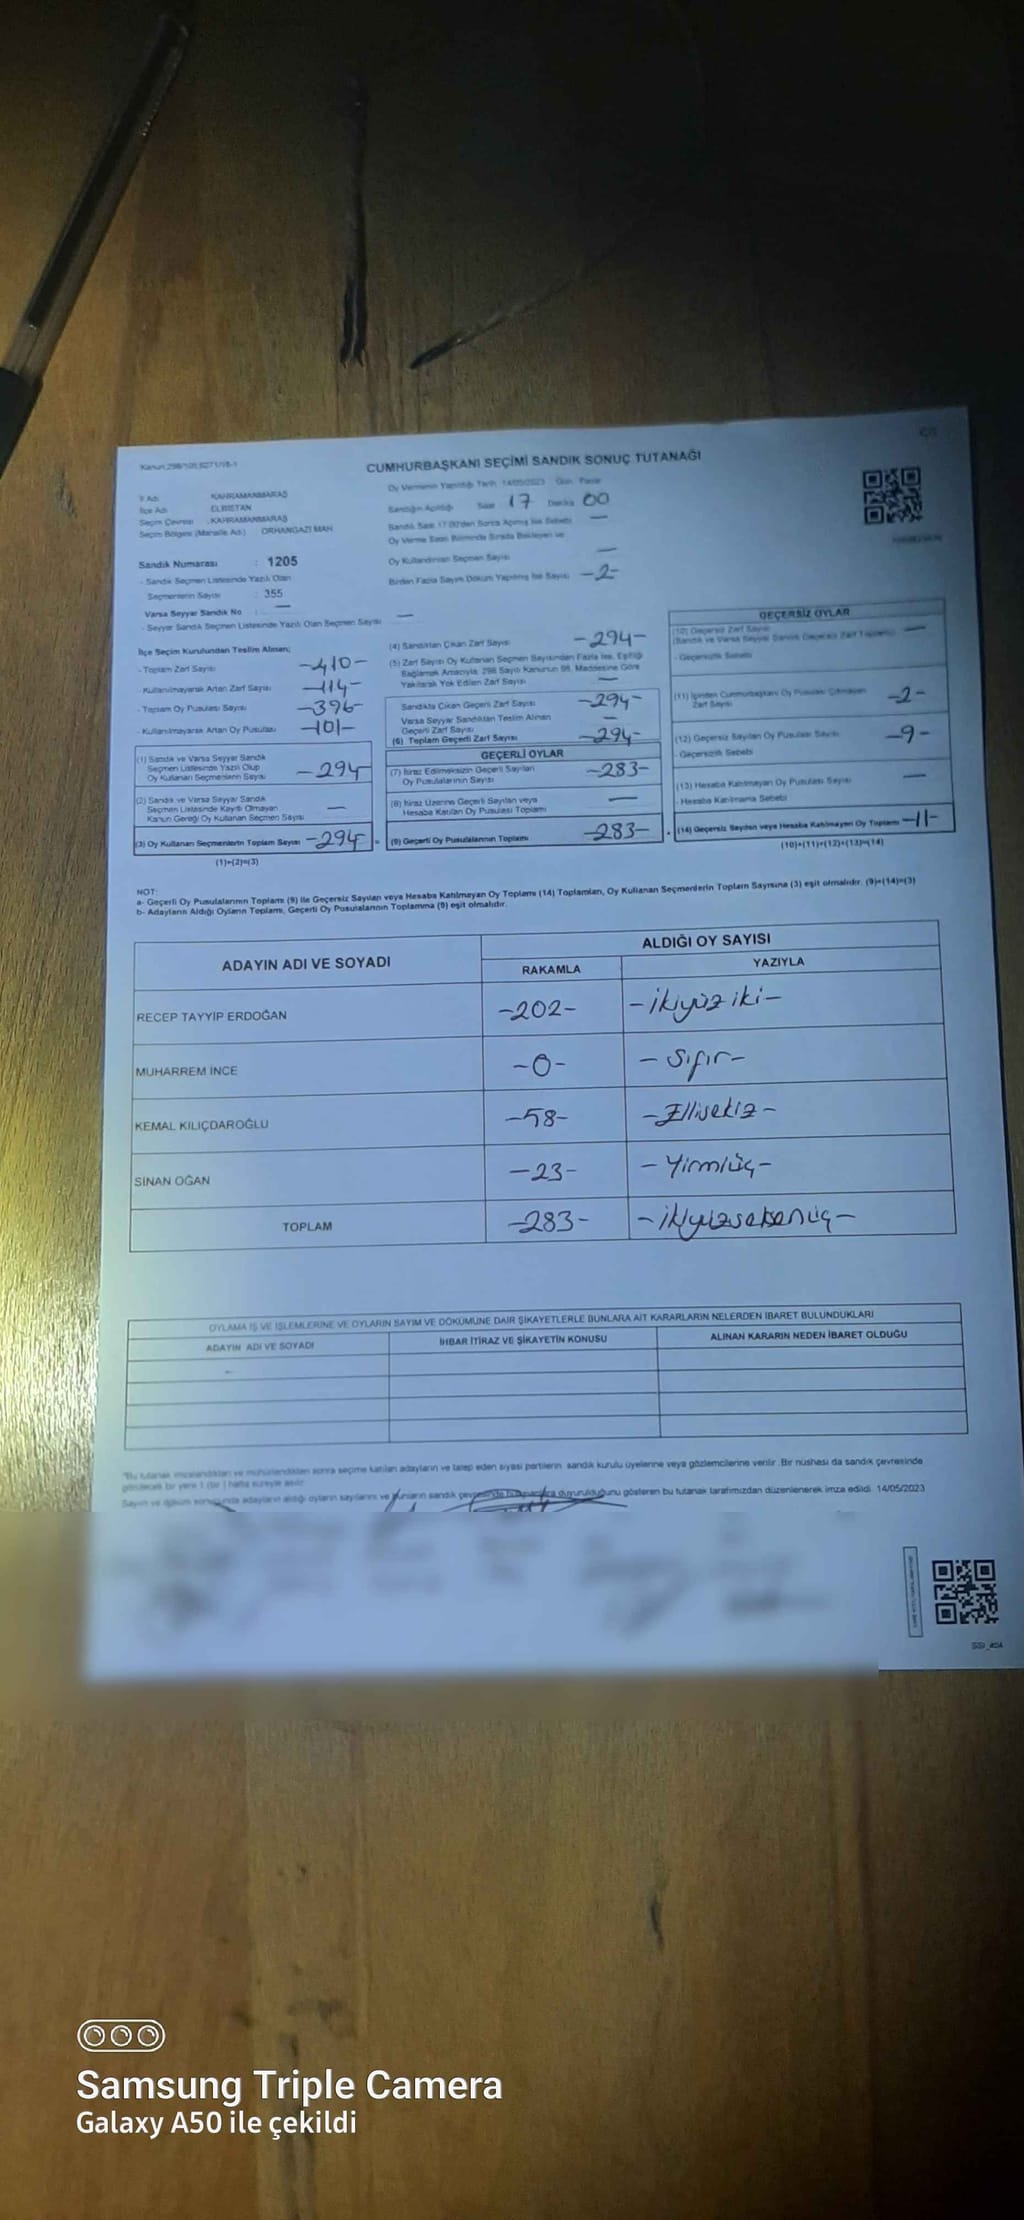 Kanun:298/105,6271/18-1
CUMHURBAŞKANI SEÇİMİ SANDIK SONUÇ TUTANAĞI
İl Adı KAHRAMANMARAŞ
İlçe Adı ELBİSTAN
Seçim Çevresi : KAHRAMANMARAŞ
Seçim Bölgesi (Mahalle Adı) ORHANGAZİ MAH
Sandık Numarası : 1205
- Sandık Seçmen Listesinde Yazılı Olan
Seçmenlerin Sayısı : 355
Varsa Seyyar Sandık No : —
- Seyyar Sandık Seçmen Listesinde Yazılı Olan Seçmen Sayısı —
Oy Vermenin Yapıldığı Tarih 14/05/2023 Gün Pazar
Sandığın Açıldığı Saat 17 Dakika 00
Sandık Saat 17:00'den Sonra Açılmış İse Sebebi —
Oy Verme Saati Bitiminde Sırada Bekleyen ve
Oy Kullandırılan Seçmen Sayısı —
Birden Fazla Sayım Döküm Yapılmış İse Sayısı -2-
İlçe Seçim Kurulundan Teslim Alınan;
- Toplam Zarf Sayısı -410-
- Kullanılmayarak Artan Zarf Sayısı -114-
- Toplam Oy Pusulası Sayısı -396-
- Kullanılmayarak Artan Oy Pusulası -101-
(1) Sandık ve Varsa Seyyar Sandık
Seçmen Listesinde Yazılı Olup
Oy Kullanan Seçmenlerin Sayısı -294-
(2) Sandık ve Varsa Seyyar Sandık
Seçmen Listesinde Kayıtlı Olmayan
Kanun Gereği Oy Kullanan Seçmen Sayısı —
(3) Oy Kullanan Seçmenlerin Toplam Sayısı -294-
(1)+(2)=(3)
(4) Sandıktan Çıkan Zarf Sayısı -294-
(5) Zarf Sayısı Oy Kullanan Seçmen Sayısından Fazla İse, Eşitliği
Sağlamak Amacıyla, 298 Sayılı Kanunun 98. Maddesine Göre
Yakılarak Yok Edilen Zarf Sayısı —
Sandıkta Çıkan Geçerli Zarf Sayısı -294-
Varsa Seyyar Sandıktan Teslim Alınan
Geçerli Zarf Sayısı —
(6) Toplam Geçerli Zarf Sayısı -294-
GEÇERLİ OYLAR
(7) İtiraz Edilmeksizin Geçerli Sayılan
Oy Pusulalarının Sayısı -283-
(8) İtiraz Üzerine Geçerli Sayılan veya
Hesaba Katılan Oy Pusulası Toplamı —
(9) Geçerli Oy Pusulalarının Toplamı -283-
GEÇERSİZ OYLAR
(10) Geçersiz Zarf Sayısı
(Sandık ve Varsa Seyyar Sandık Geçersiz Zarf Toplamı) —
- Geçersizlik Sebebi
(11) İçinden Cumhurbaşkanı Oy Pusulası Çıkmayan
Zarf Sayısı -2-
(12) Geçersiz Sayılan Oy Pusulası Sayısı -9-
- Geçersizlik Sebebi
(13) Hesaba Katılmayan Oy Pusulası Sayısı —
- Hesaba Katılmama Sebebi
(14) Geçersiz Sayılan veya Hesaba Katılmayan Oy Toplamı -11-
(10)+(11)+(12)+(13)=(14)
NOT:
a- Geçerli Oy Pusulalarının Toplamı (9) ile Geçersiz Sayılan veya Hesaba Katılmayan Oy Toplamı (14) Toplamları, Oy Kullanan Seçmenlerin Toplam Sayısına (3) eşit olmalıdır. (9)+(14)=(3)
b- Adayların Aldığı Oyların Toplamı, Geçerli Oy Pusulalarının Toplamına (9) eşit olmalıdır.
ADAYIN ADI VE SOYADI ALDIĞI OY SAYISI
RAKAMLA YAZIYLA
RECEP TAYYİP ERDOĞAN -202- -ikiyüz iki-
MUHARREM İNCE -0- -Sıfır-
KEMAL KILIÇDAROĞLU -58- -Ellisekiz-
SİNAN OĞAN -23- -Yirmiüç-
TOPLAM -283- -ikiyüzseksenüç-
OYLAMA İŞ VE İŞLEMLERİNE VE OYLARIN SAYIM VE DÖKÜMÜNE DAİR ŞİKAYETLERLE BUNLARA AİT KARARLARIN NELERDEN İBARET BULUNDUKLARI
ADAYIN ADI VE SOYADI İHBAR İTİRAZ VE ŞİKAYETİN KONUSU ALINAN KARARIN NEDEN İBARET OLDUĞU
"Bu tutanak imzalandıktan ve mühürlendikten sonra seçime katılan adayların ve talep eden siyasi partilerin sandık kurulu üyelerine veya gözlemcilerine verilir. Bir nüshası da sandık çevresinde
görülecek bir yere 1 (bir) hafta süreyle asılır.
Sayım ve döküm sonucunda adayların aldığı oyların sayılarını ve bunların sandık çevresinde duyurulduğunu gösteren bu tutanak tarafımızdan düzenlenerek imza edildi. 14/05/2023
Samsung Triple Camera
Galaxy A50 ile çekildi